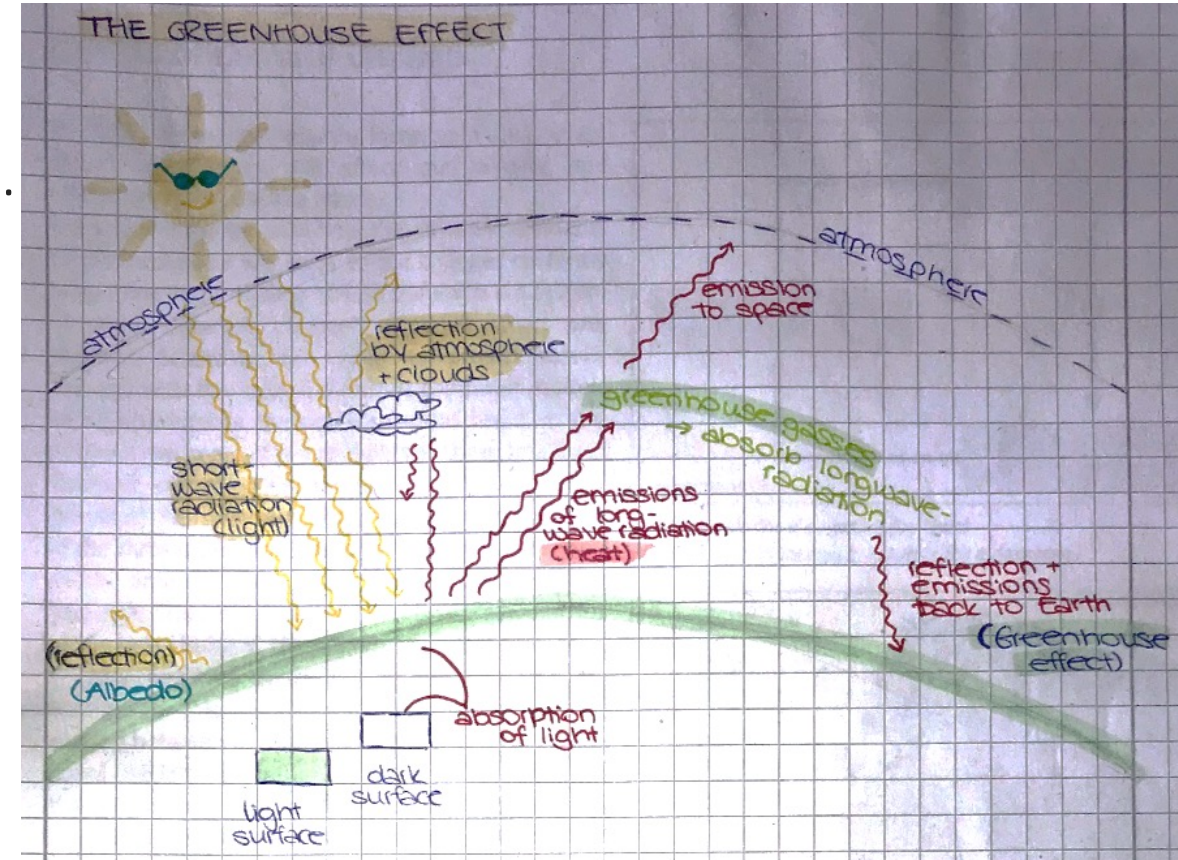 THE GREENHOUSE EFFECT
atmosphere
atmosphere
emission
to space
reflection
by atmosphere
+ clouds
greenhouse gasses
→ absorb longwave-
radiation
short-
wave
radiation
(light)
emissions
of long-
wave radiation
(heat)
reflection +
emissions
back to Earth
(Greenhouse
effect)
(reflection)
(Albedo)
absorption
of light
dark
surface
light
surface